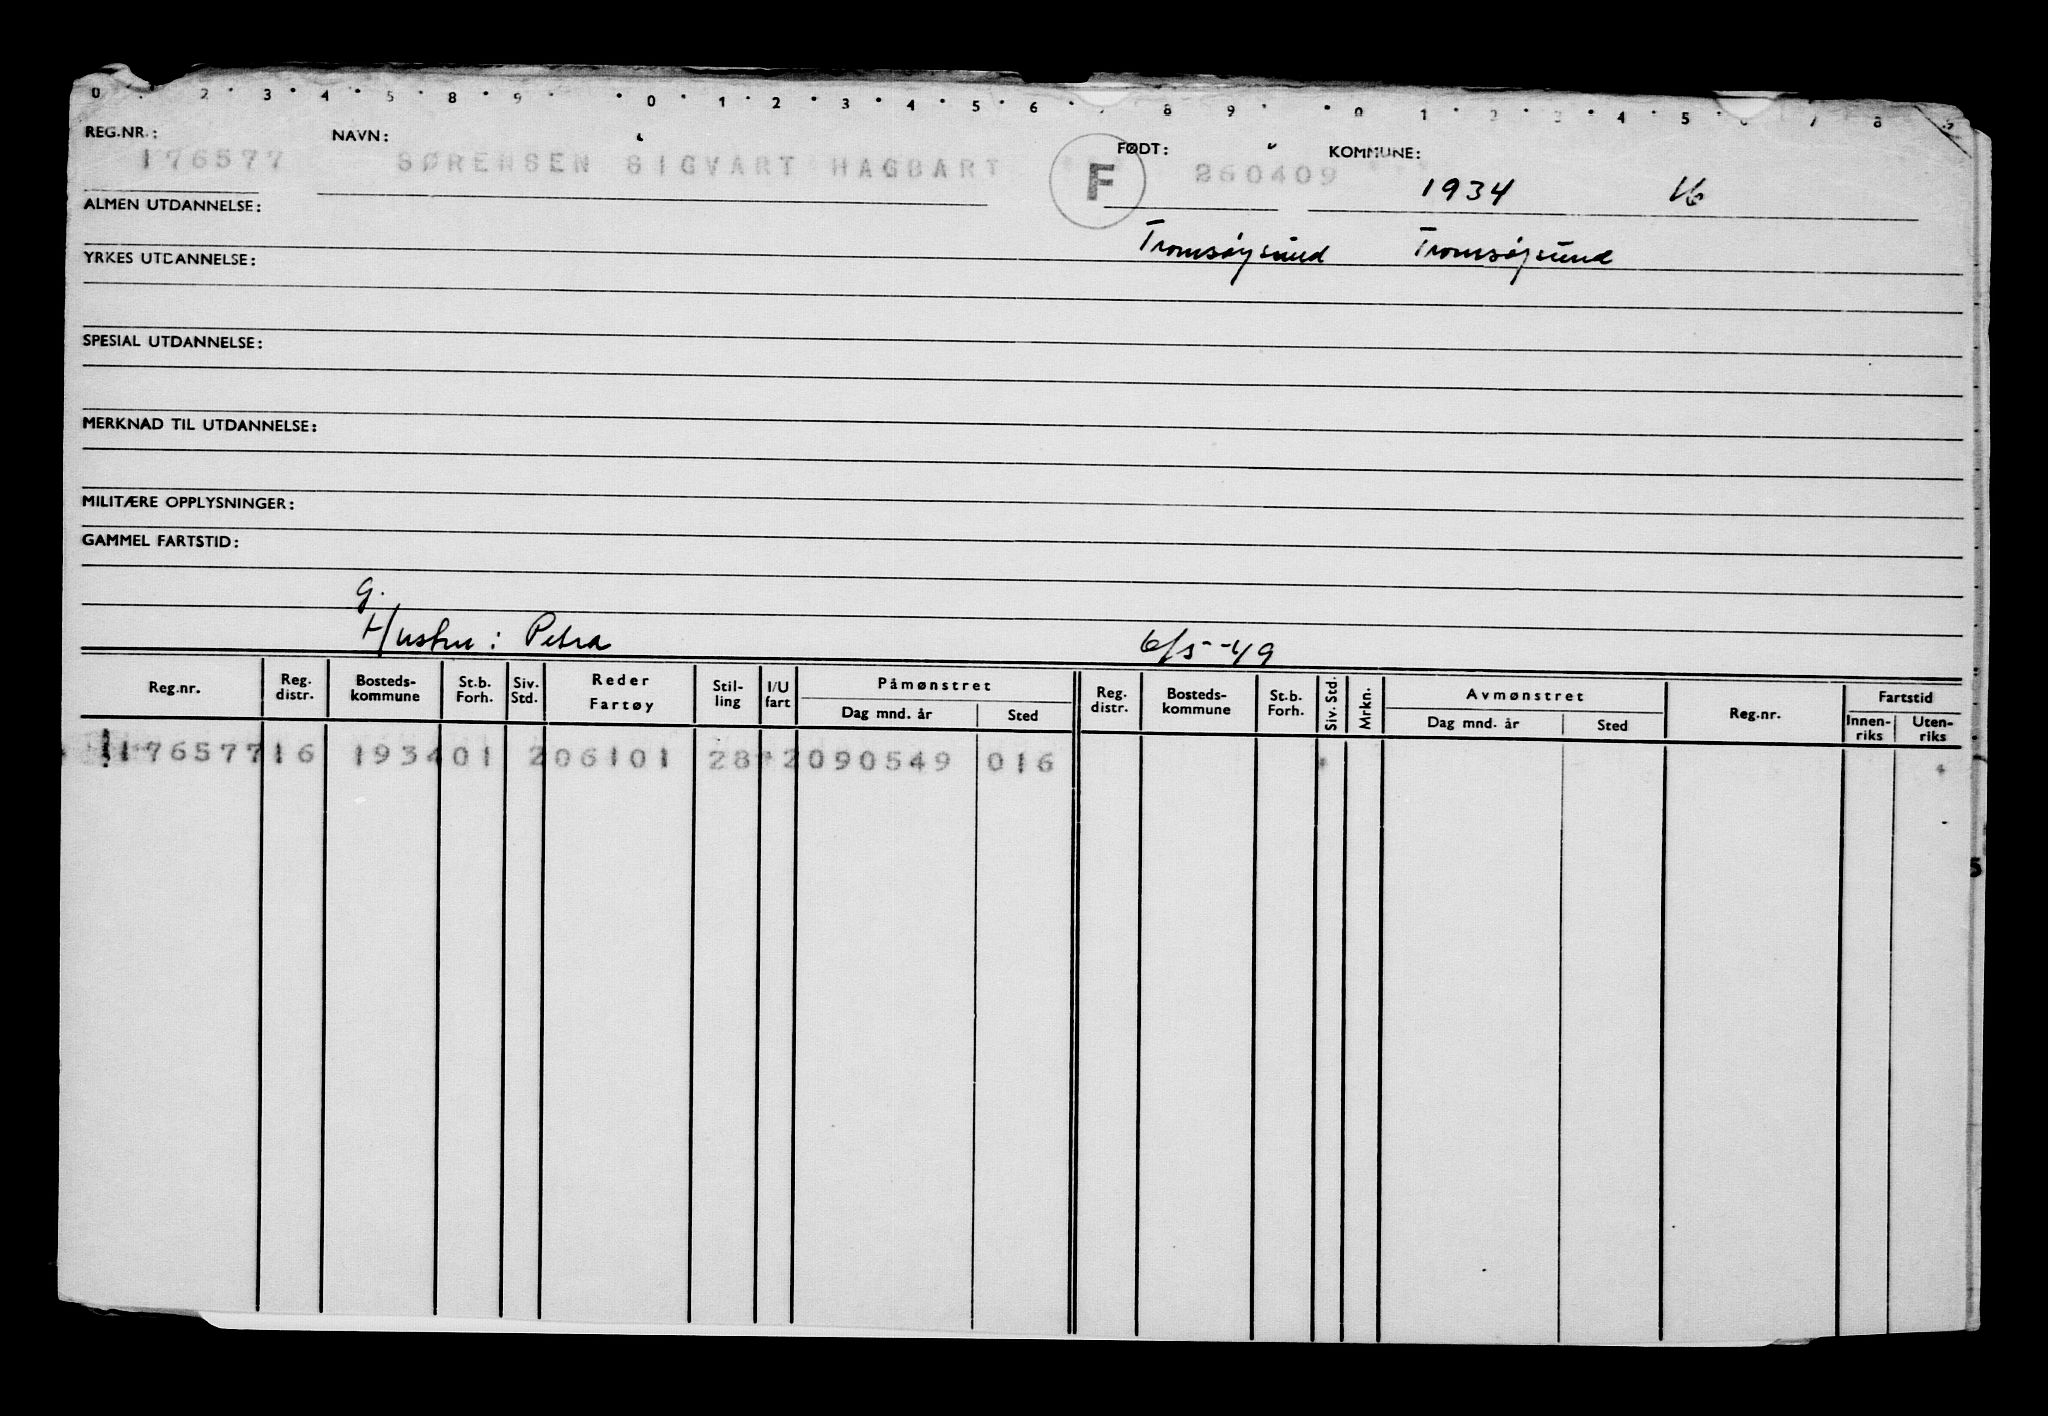 0 2 3 4 5 8 9 0 1 2 3 4 5 6 8 9 0 1 2 3 4 5 8 9
REG.NR.: NAVN: FØDT: KOMMUNE:
176577 SØRENSEN SIGVART HAGBART F 260409 1934 16
ALMEN UTDANNELSE: Tromsøysund Tromsøysund
YRKES UTDANNELSE:
SPESIAL UTDANNELSE:
MERKNAD TIL UTDANNELSE:
MILITÆRE OPPLYSNINGER:
GAMMEL FARTSTID:
g.
Hustru: Petra 6/5-49
Reg.nr. Reg. distr. Bosteds-kommune St.b. Forh. Siv. Std. Reder Fartøy Stil-ling I/U fart Påmønstret Dag mnd. år Sted Reg. distr. Bosteds-kommune St.b. Forh. Siv. Std. Mrkn. Avmønstret Dag mnd. år Sted Reg.nr. Fartstid Innen-riks Uten-riks
176577 16 1934 01 2 06101 28 2 090549 016
5